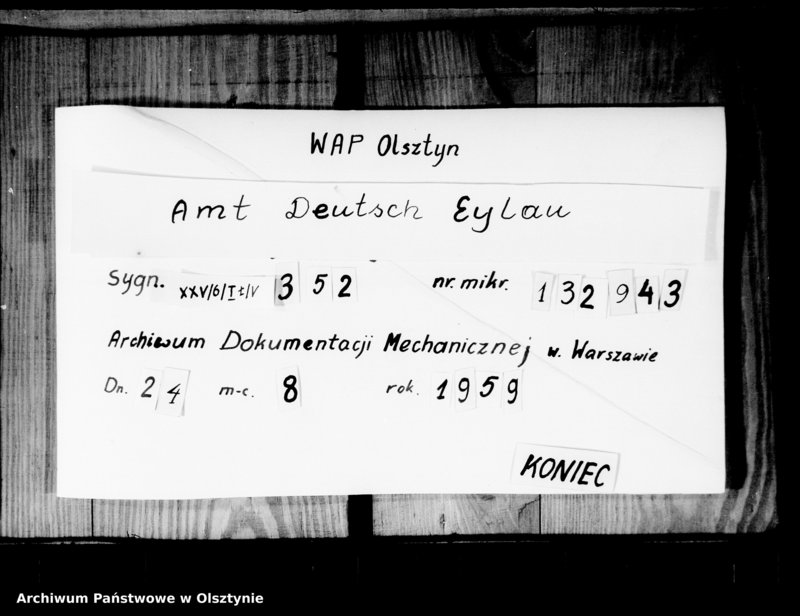 WAP Olsztyn
Amt Deutsch Eylau
Sygn. XXV/6/I t/V 352 nr. mikr. 132943
Archiwum Dokumentacji Mechanicznej w. Warszawie
Dn. 24 m-c. 8 rok. 1959
KONIEC
Archiwum Państwowe w Olsztynie